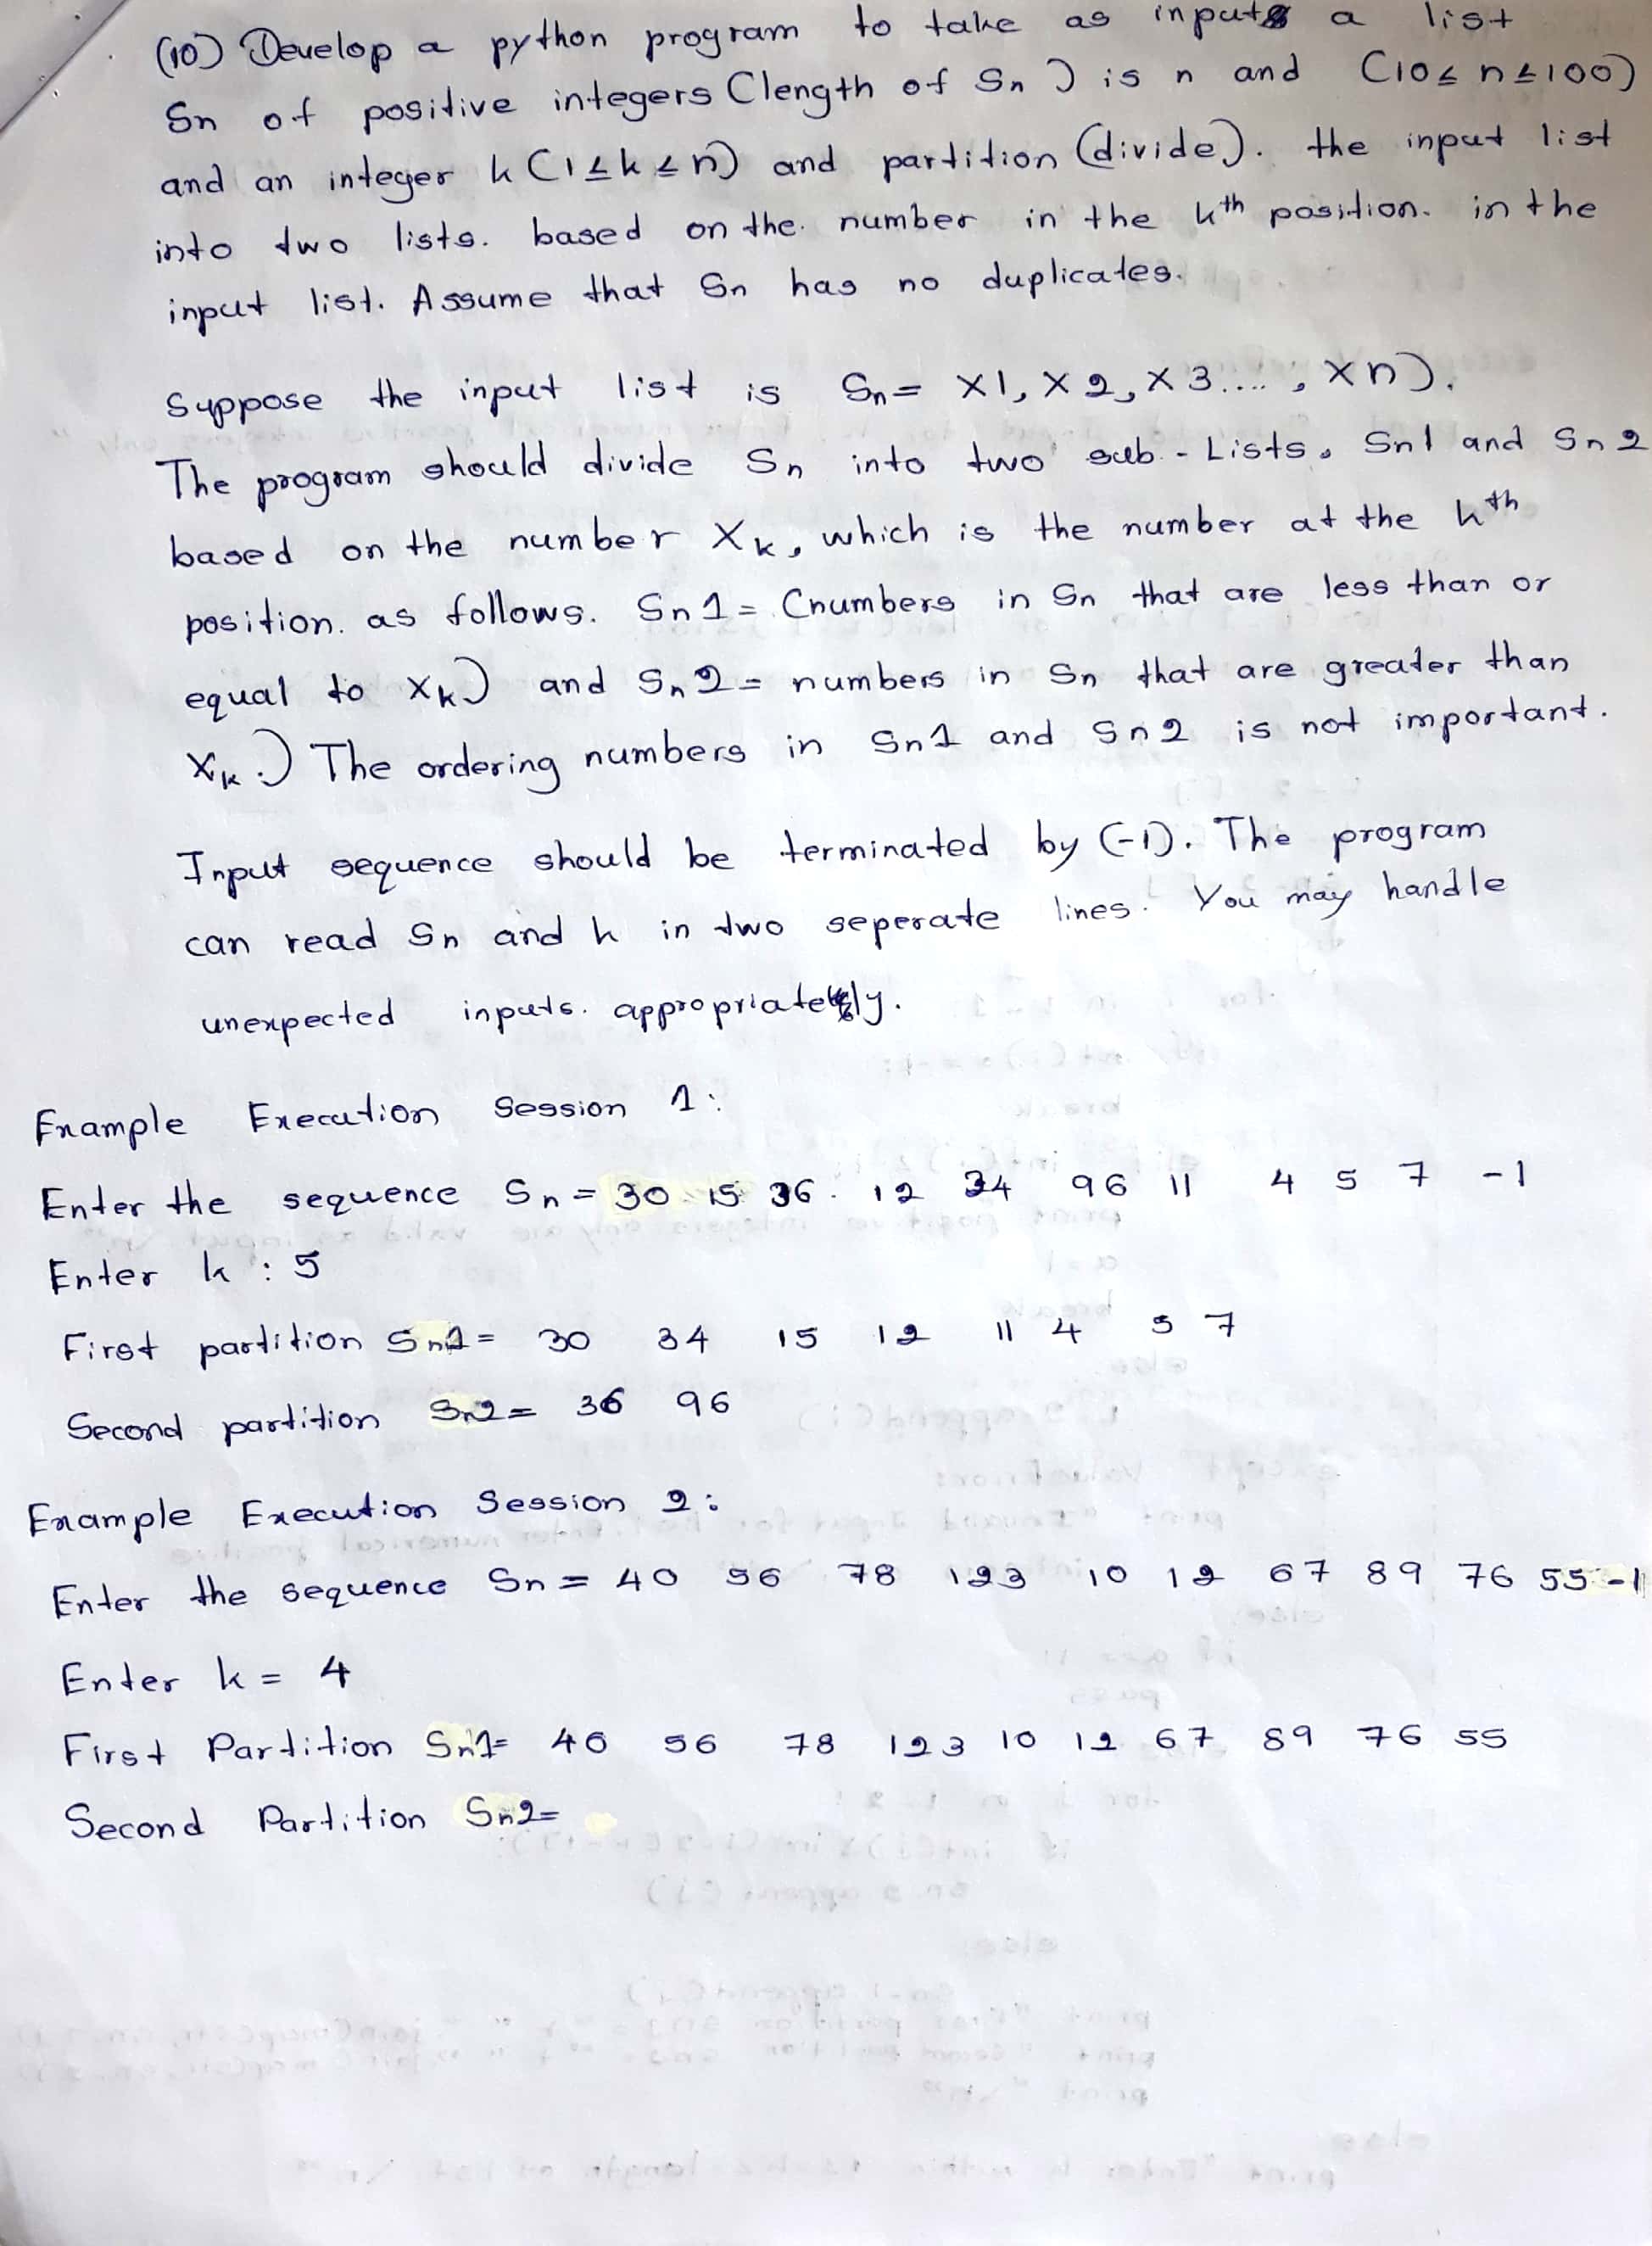 (10) Develop a python program to take as inputs a list
Sn of positive integers (length of Sn) is n and (10≤n≤100)
and an integer k (1≤k≤n) and partition (divide). the input list
into two lists. based on the. number in the kth position. in the
input list. Assume that Sn has no duplicates.
Suppose the input list is Sn= X1, X2, X3...., Xn).
The program should divide Sn into two sub-Lists, Sn1 and Sn2
based on the number Xk, which is the number at the kth
position. as follows. Sn1= (numbers in Sn that are less than or
equal to Xk) and Sn2= numbers in Sn that are greater than
Xk.) The ordering numbers in Sn1 and Sn2 is not important.
Input sequence should be terminated by (-1). The program
can read Sn and k in two seperate lines. You may handle
unexpected inputs. appropriately.
Example Execution Session 1:
Enter the sequence Sn= 30 15 36. 12 34 96 11 4 5 7 -1
Enter k : 5
First partition Sn1= 30 34 15 12 11 4 5 7
Second partition Sn2= 36 96
Example Execution Session 2:
Enter the sequence Sn= 40 56 78 123 10 12 67 89 76 55 -1
Enter k= 4
First Partition Sn1= 40 56 78 123 10 12 67 89 76 55
Second Partition Sn2=